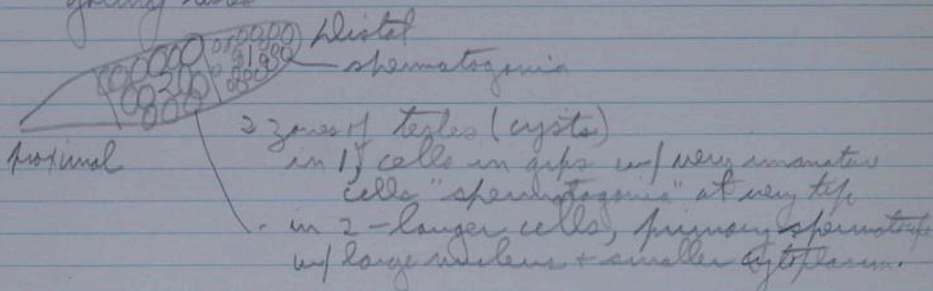 young testes
Distal
spermatogonia
proximal
2 zones of testes (cysts)
in 1) cells in grps w/ very immature
cells "spermatogonia" at very tip
- in 2 - larger cells, primary spermatocyte
w/ large nucleus + smaller cytoplasm.